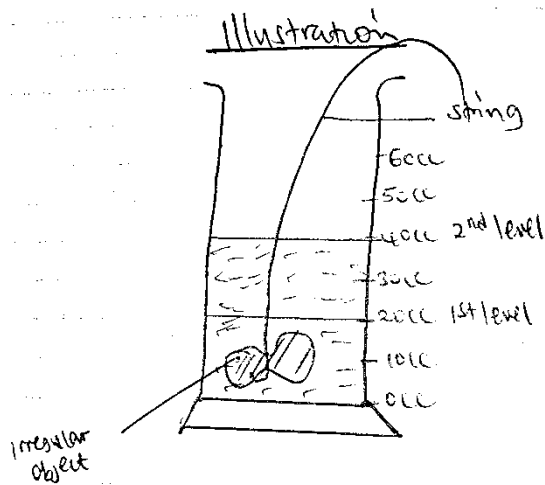 Illustration
string
60cc
50cc
40cc 2nd level
30cc
20cc 1st level
10cc
0cc
irregular
object